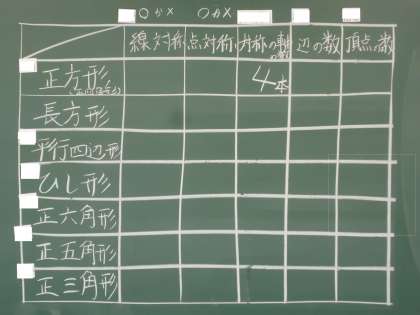 ○か× ○か×
線対称 点対称 対称の軸の数 辺の数 頂点の数
正方形 4本
長方形
平行四辺形
ひし形
正六角形
正五角形
正三角形